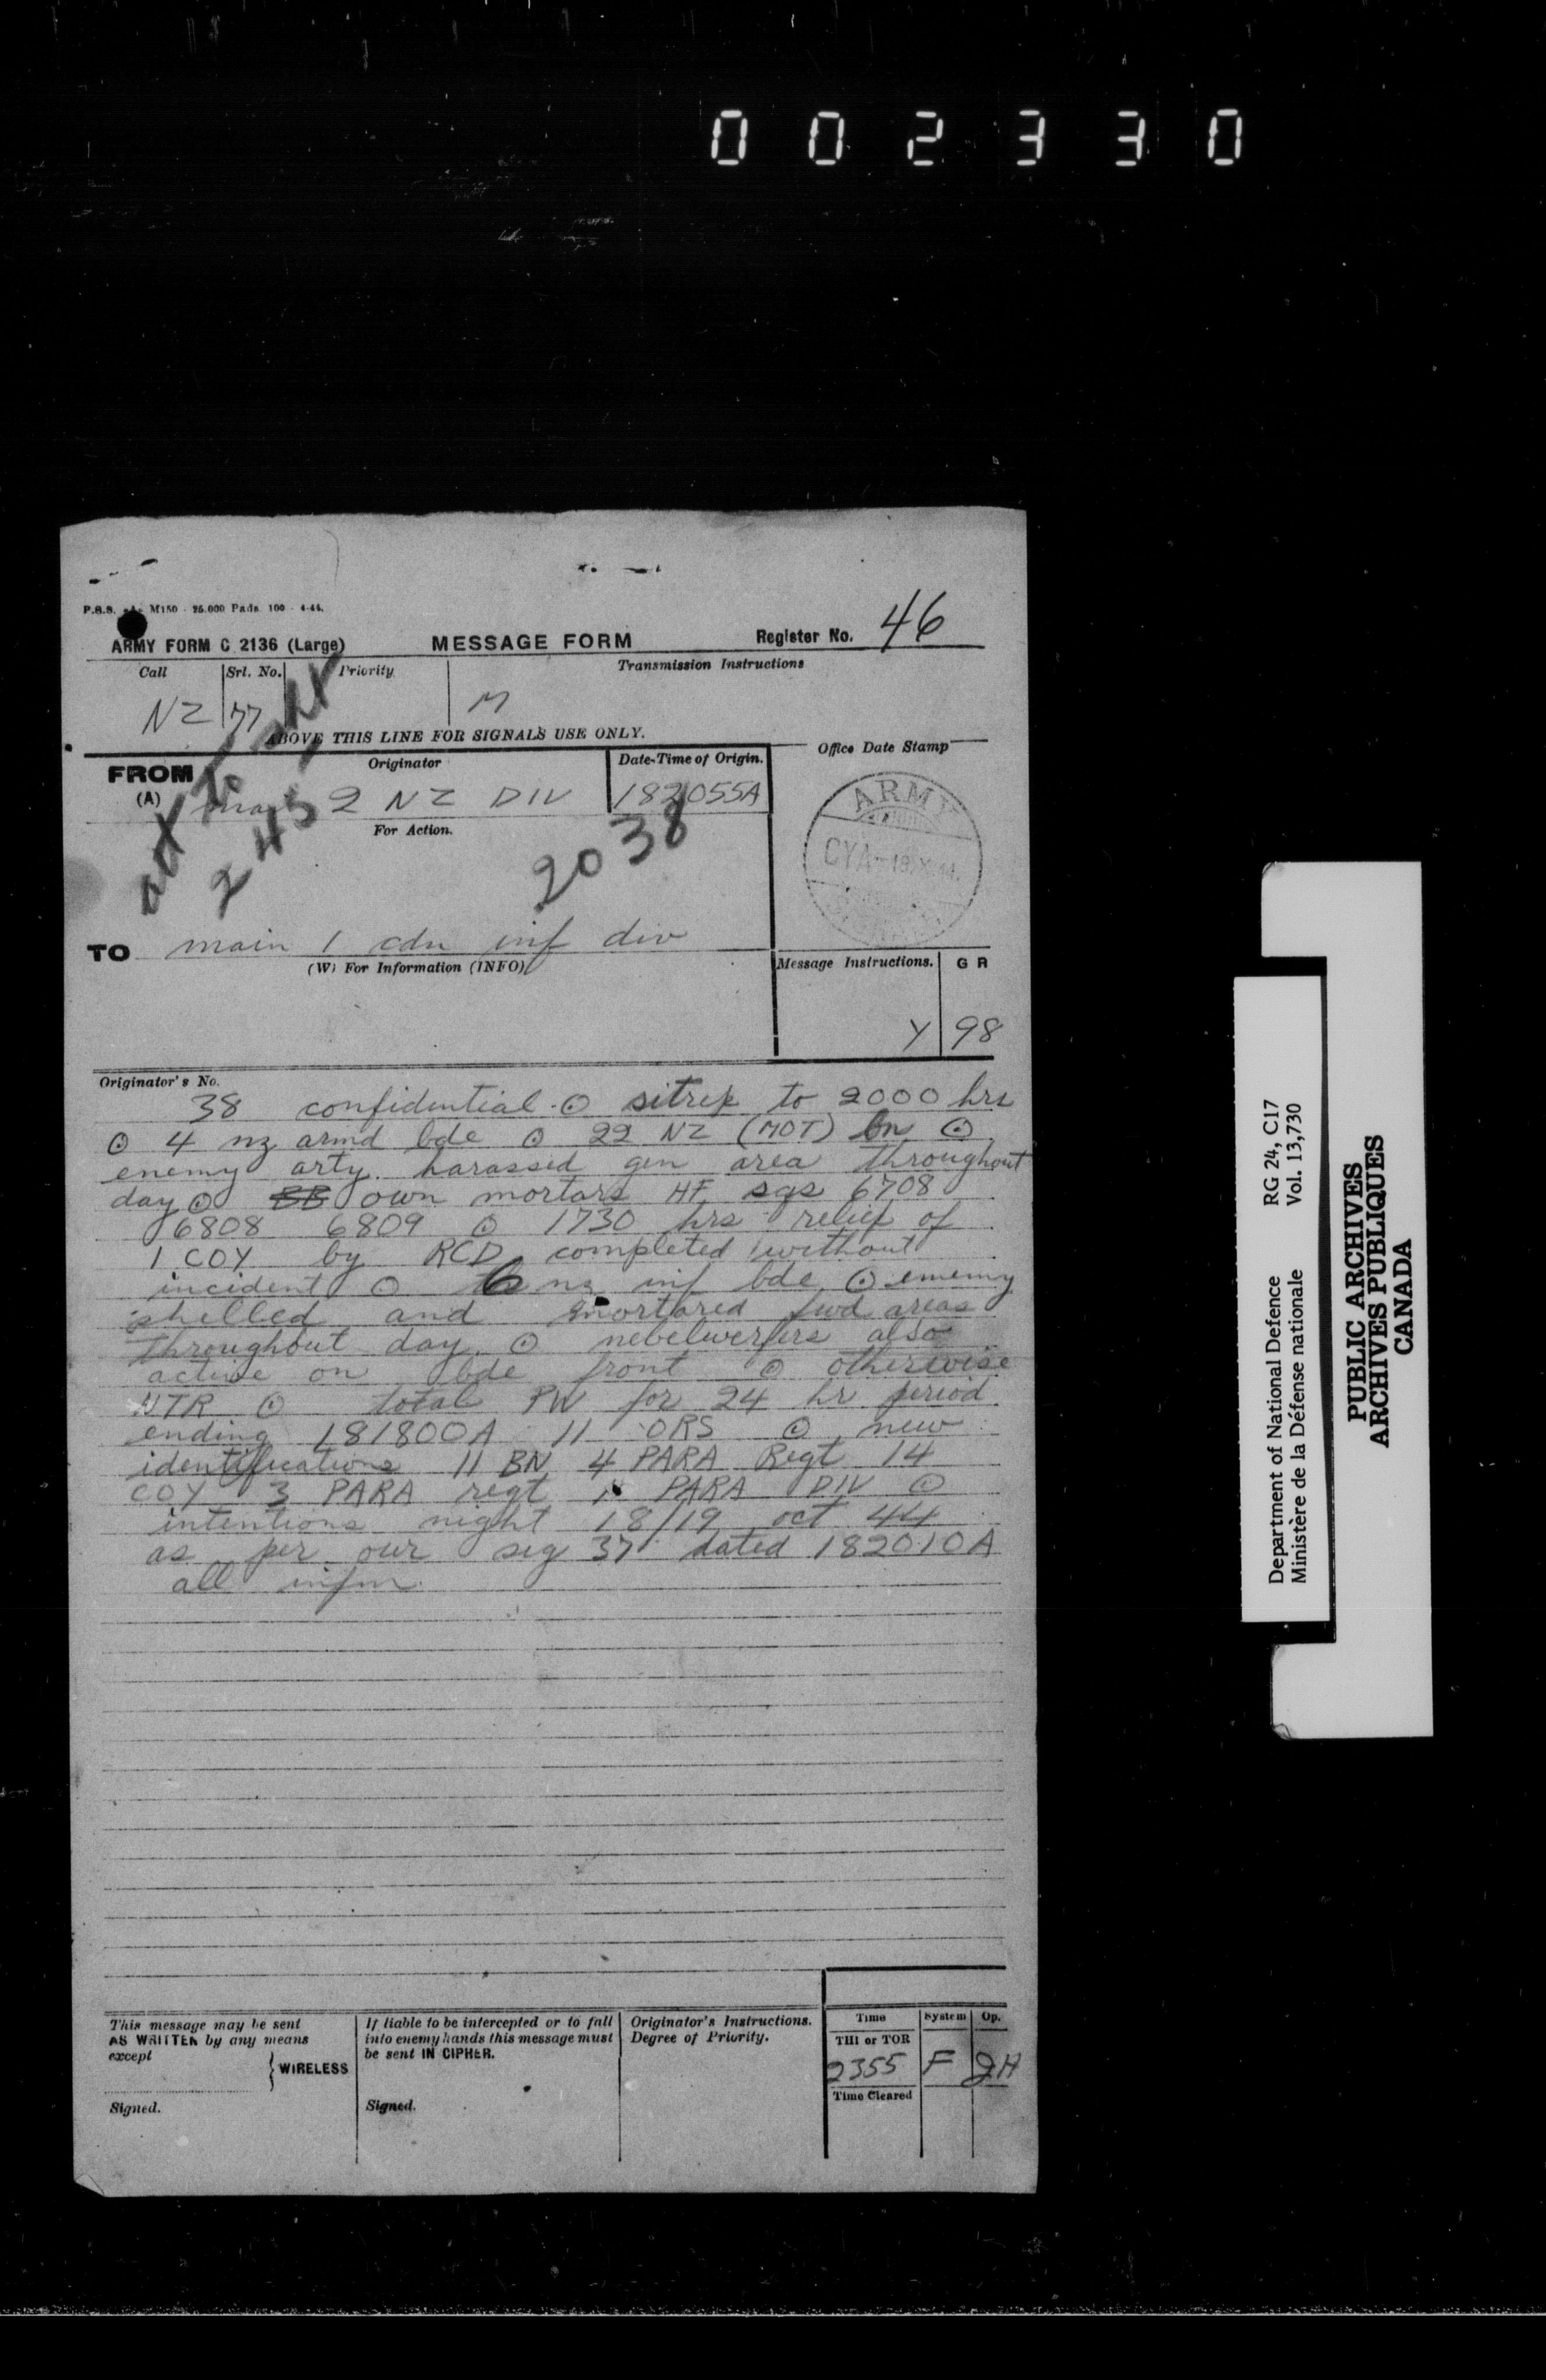 0 0 2 3 3 0
P.B.S. «A» M150 - 25.000 Pads. 100 - 4-44.
ARMY FORM C 2136 (Large) MESSAGE FORM Register No. 46
Call Srl. No. Priority Transmission Instructions
NZ 77 M
ABOVE THIS LINE FOR SIGNALS USE ONLY.
FROM (A) Originator Date-Time of Origin. Office Date Stamp
main 2 NZ DIV 182055A
For Action.
2038
ARMY
TO main 1 cdn inf div
(W) For Information (INFO) Message Instructions. G R
Y 98
Originator's No.
38 confidential ⊙ sitrep to 2000 hrs
⊙ 4 nz armd bde ⊙ 22 NZ (MOT) bn ⊙
enemy arty harassed gen area throughout
day ⊙ own mortars HF sqs 6708
6808 6809 ⊙ 1730 hrs relief of
1 COY by RCD completed without
incident ⊙ 6 nz inf bde ⊙ enemy
shelled and mortared fwd areas
throughout day ⊙ nebelwerfers also
active on bde front ⊙ otherwise
NTR ⊙ total PW for 24 hr period
ending 181800A 11 ORS ⊙ new
identifications 11 BN 4 PARA Regt 14
COY 3 PARA regt PARA DIV ⊙
intentions night 18/19 oct 44
as per our sig 37 dated 182010A
all infm
This message may be sent AS WRITTEN by any means except } WIRELESS
Signed.
If liable to be intercepted or to fall into enemy hands this message must be sent IN CIPHER.
Signed.
Originator's Instructions. Degree of Priority.
Time System Op.
THI or TOR
2355 F JH
Time Cleared
Department of National Defence RG 24, C17
Ministère de la Défense nationale Vol. 13,730
PUBLIC ARCHIVES
ARCHIVES PUBLIQUES
CANADA